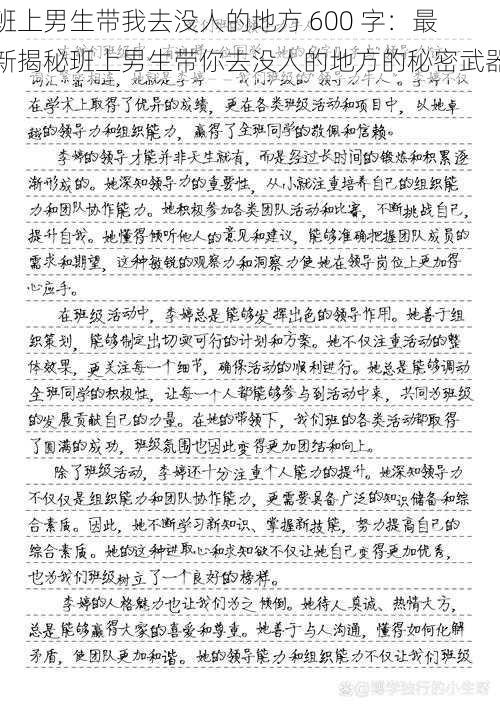 班上男生带我去没人的地方 600 字：最
新揭秘班上男生带你去没人的地方的秘密武器
在学术上取得了优异的成绩，更在各类班级活动和项目中，以她卓
越的领导力和组织能力，赢得了全班同学的敬佩和信赖。
李婷的领导才能并非天生就有，而是经过长时间的锻炼和积累逐
渐形成的。她深知领导力的重要性，从小就注重培养自己的组织能
力和团队协作能力。她积极参加各类团队活动和比赛，不断挑战自己，
提升自我。她懂得倾听他人的意见和建议，能够准确把握团队成员的
需求和期望，这种敏锐的观察力和洞察力使她在领导岗位上更加得
心应手。
在班级活动中，李婷总是能够发挥出色的领导作用。她善于组
织策划，能够制定出切实可行的计划和方案。她不仅注重活动的整
体效果，更关注每一个细节，确保活动的顺利进行。她总是能够调动
全班同学的积极性，让每一个人都能够参与到活动中来，共同为班级
的发展贡献自己的力量。在她的带领下，我们班的各类活动都取得
了圆满的成功，班级氛围也因此变得更加团结和向上。
除了班级活动，李婷还十分注重个人能力的提升。她深知领导力
不仅仅是组织能力和团队协作能力，更需要具备广泛的知识储备和综
合素质。因此，她不断学习新知识、掌握新技能，努力提高自己的
综合素质。她的这种进取心和求知欲不仅让她自己变得更加优秀，
也为我们班级树立了一个良好的榜样。
李婷的人格魅力也让我们为之倾倒。她待人真诚、热情大方，
总是能够赢得大家的喜爱和尊重。她善于与人沟通，懂得如何化解
矛盾，使团队更加和谐。她的领导能力和组织能力不仅让我们班级
@博学独行的小生呀